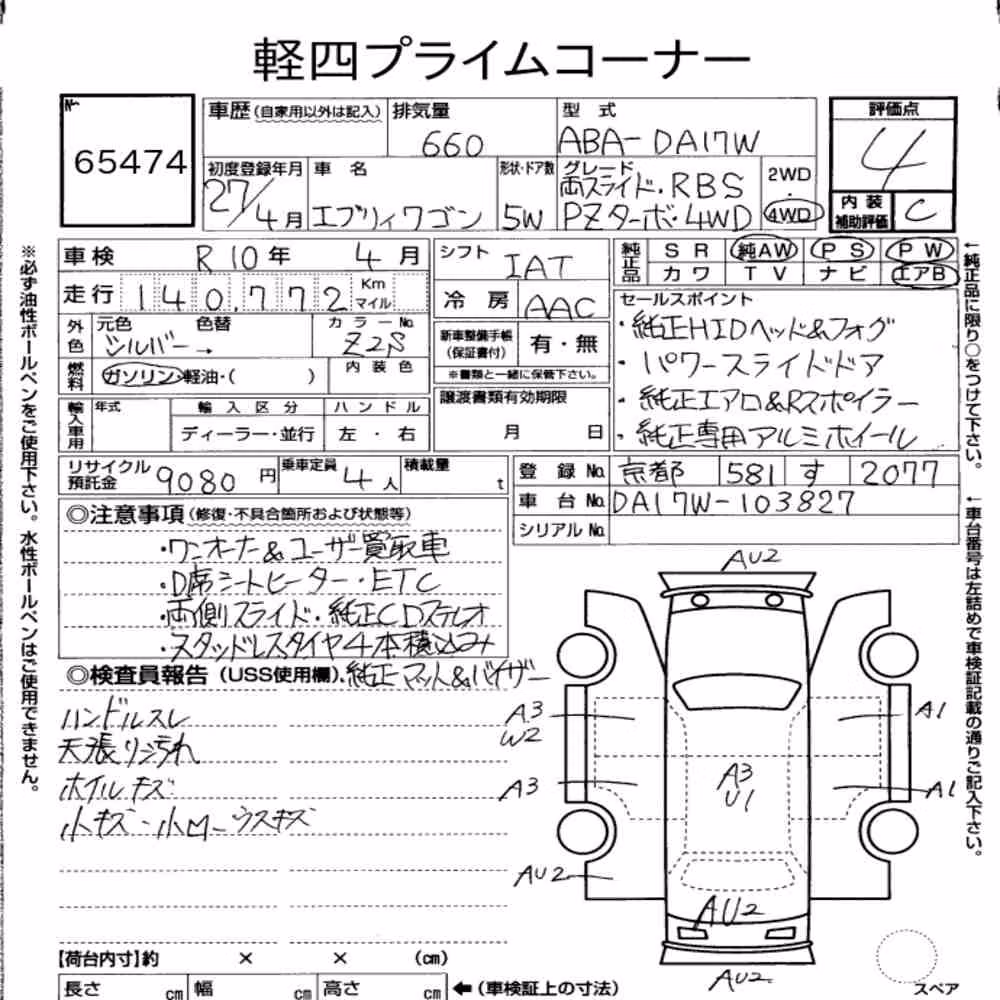 軽四プライムコーナー
No.
65474
車歴(自家用以外は記入)
排気量
660
型 式
ABA-DA17W
評価点
4
初度登録年月
27/4月
車 名
エブリィワゴン
形状・ドア数
5W
グレード
両スライド・RBS
PZターボ・4WD
2WD
・
4WD
内 装
補助評価
C
車検
R10年 4月
シフト
IAT
純正品
SR 純AW PS PW
カワ TV ナビ エアB
走行
140,772
Km
マイル
冷房
AAC
セールスポイント
・純正HIDヘッド&フォグ
・パワースライドドア
・純正エアロ&Rスポイラー
・純正専用アルミホイール
外色
元色
シルバー→
色替
カラーNo.
Z2S
新車整備手帳
(保証書付)
有・無
※書類と一緒に保管下さい。
燃料
ガソリン・軽油・( )
内装色
輸入車用
年式
輸入区分
ハンドル
ディーラー・並行
左・右
譲渡書類有効期限
月 日
リサイクル
預託金
9080円
乗車定員
4人
積載量
t
登録No.
京都 581 す 2077
車台No.
DA17W-103827
シリアルNo.
◎注意事項(修復・不具合箇所および状態等)
・ワンオーナー&ユーザー買取車
・D席シートヒーター・ETC
・両側スライド・純正CDステレオ
・スタッドレスタイヤ4本積込み
・純正マット&バイザー
◎検査員報告(USS使用欄)
ハンドルスレ
天張リシミ汚れ
ホイルキズ
小キズ・小凹・ウスキズ
AU2
A3
W2
A1
A3
A3
U1
A1
AU2
AU2
AU2
【荷台内寸】約 × × (cm)
長さ cm 幅 cm 高さ cm
←(車検証上の寸法)
スペア
※必ず油性ボールペンをご使用下さい。水性ボールペンはご使用できません。
←純正品に限り○をつけて下さい。
←車台番号は左詰めで車検証記載の通りご記入下さい。